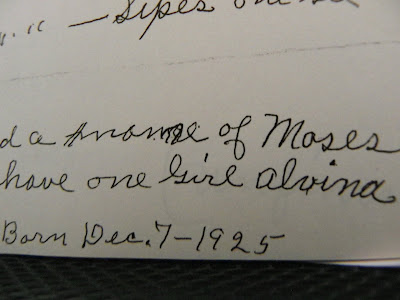 — Sipes one
d a of Moses
have one Girl Alvina
Born Dec. 7 - 1925